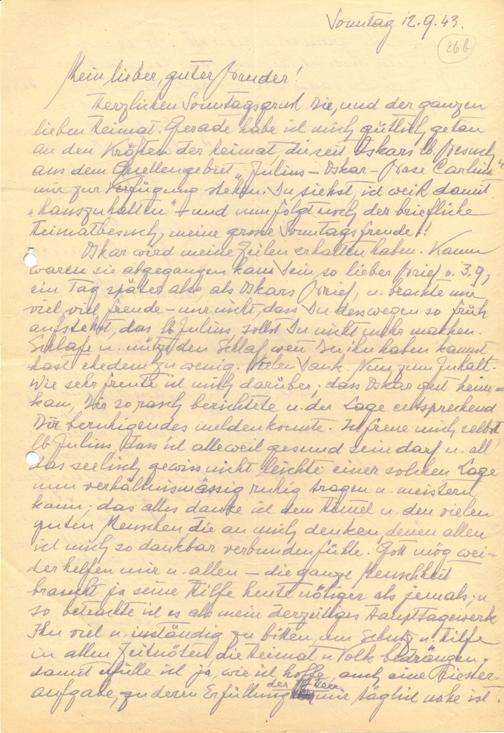 Sonntag 12.9.43.
26b
Mein lieber, guter Bruder!
Herzlichen Sonntagsgruß Dir, und der ganzen
lieben Heimat. Gerade habe ich mich gütlich getan
an den Kräften der Heimat, die seit Oskars lb. Besuch
aus dem Quellengebiet "Julius-Oskar-Rosa Caroline"
mir zur Verfügung stehen. Du siehst ich weiß damit
"hauszuhalten" - und nun folgt noch der briefliche
Heimatbesuch, meine grosse Sonntagsfreude!
Oskar wird meine Zeilen erhalten haben. Kaum
waren sie abgegangen kam Dein so lieber Brief v. 3.9,
ein Tag später also als Oskars Brief, u. brachte mir
viel, viel Freude - nur nicht, dass Du deswegen so früh
aufstehst, das lb. Julius, sollst Du nicht mehr machen.
Schlafe u. nütze den Schlaf wenn Du ihn haben kannst,
hast ehedem zu wenig. Vielen Dank. Nun zum Inhalt.
Wie sehr freute ich mich darüber, dass Oskar gut heim-
kam, Dir so rasch berichtete u. der Lage entsprechend
Dir beruhigendes melden konnte. Ich freue mich selbst
lb Julius, dass ich alleweil gesund sein darf u. all
das seelisch gewiss nicht leichte einer solchen Lage
nun verhältnismässig ruhig tragen u. meistern
kann; das alles danke ich dem Himmel u. den vielen
guten Menschen die an mich denken, denen allen
ich mich so dankbar verbunden fühle. Gott mög wei-
ter helfen mir u. allen - die ganze Menschheit
braucht ja seine Hilfe heute nötiger als jemals; u.
so betrachte ich es als mein derzeitiges Haupttagewerk
Ihn viel u. inständig zu bitten, um Schutz u. Hilfe
in allen Zeitnöten, die Heimat u. Volk bedrängen.
Damit erfülle ich ja, wie ich hoffe, auch eine Priester-
aufgabe, zu deren Erfüllung der Herr mir täglich nahe ist.